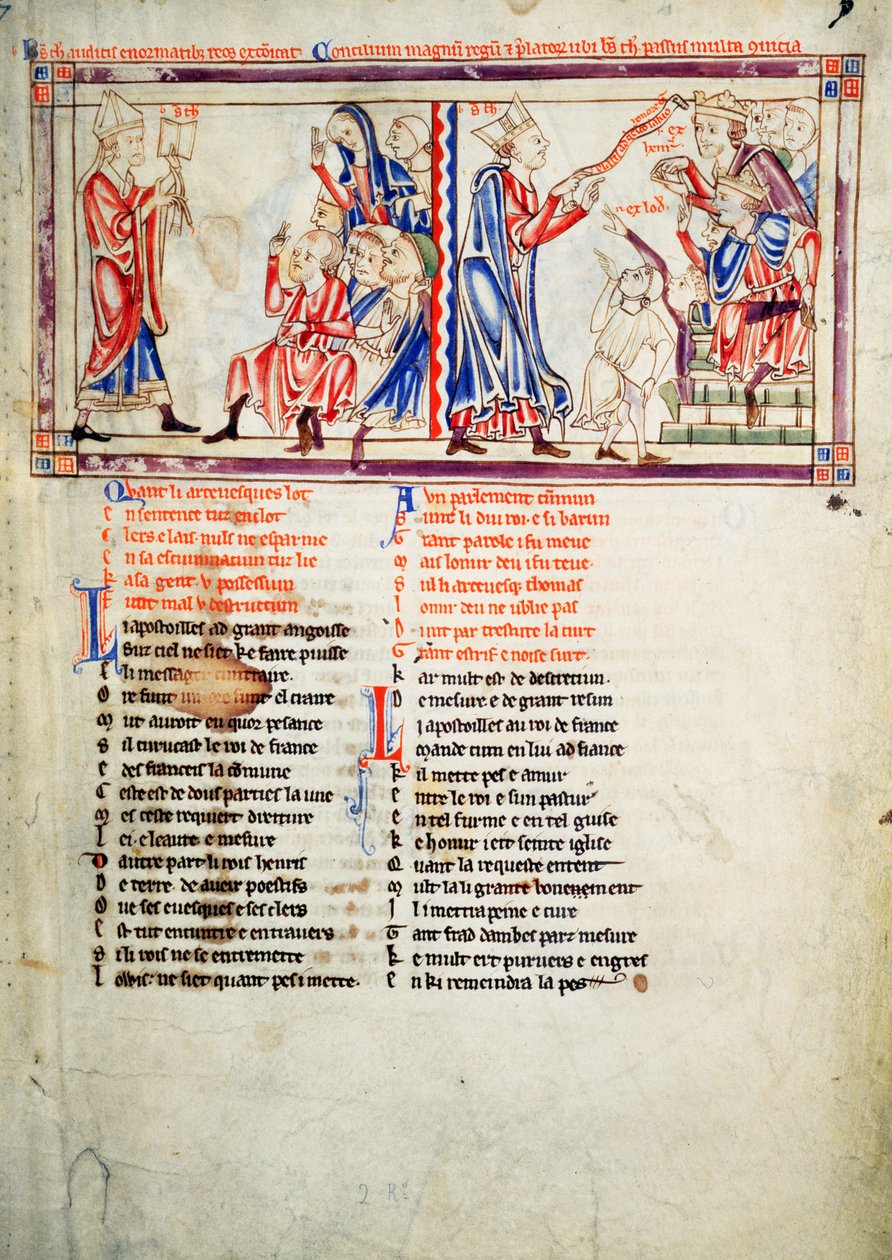 Bs th auditis enormatibz reos excoicat Concilium magnu regu ⁊ platoz ubi bs th passus multa 9uicia
bs th
bs th
rex
henr
rex lod
Quant li arcevesques lot
En sentence tuz enclot
Clers e lais nuls ne esparnie
En sa escuminaciun tuz lie
Ka sa gent u possessiun
Funt mal u destructiun
Li apostoilles ad grant angoisse
Suz ciel ne siet ke faire puisse
Li messager
Ore funt el claire
Mut auroit eu quor pesance
Sil curucast le roi de france
E des franceis la comune
Ceste est de dous parties la une
Mes ceste requiert dreiture
Lei e leaute e mesure
Dautre part li rois henris
De terre de aveir poestifs
Ove ses evesques e ses clers
Est tut encuntre e entravers
Si li rois ne se entremette
Lowis ne siet quant pes i mette.
A un parlement cumun
Sunt li dui roi e si barun
Grant parole i fu meue
Mais lonur deu i fu teue
Sul li arcevesq thomas
Lonur deu ne ublie pas
Dunt par trestute la curt
Grant estrif e noise surt
Kar mult est de descretiun.
De mesure e de grant resun
Li apostoilles au roi de france
Mande cum en lui ad fiance
Kil mette pes e amur
Entre le roi e sun pastur
En tel furme e en tel guise
Ke honur i eit seinte iglise
Quant la requeste entent
Mult la li grante bonement
Il i mettra peine e cure
Tant frad dambes parz mesure
Ke mult ert purvers e engres
En ki remeindra la pes
2 Ro